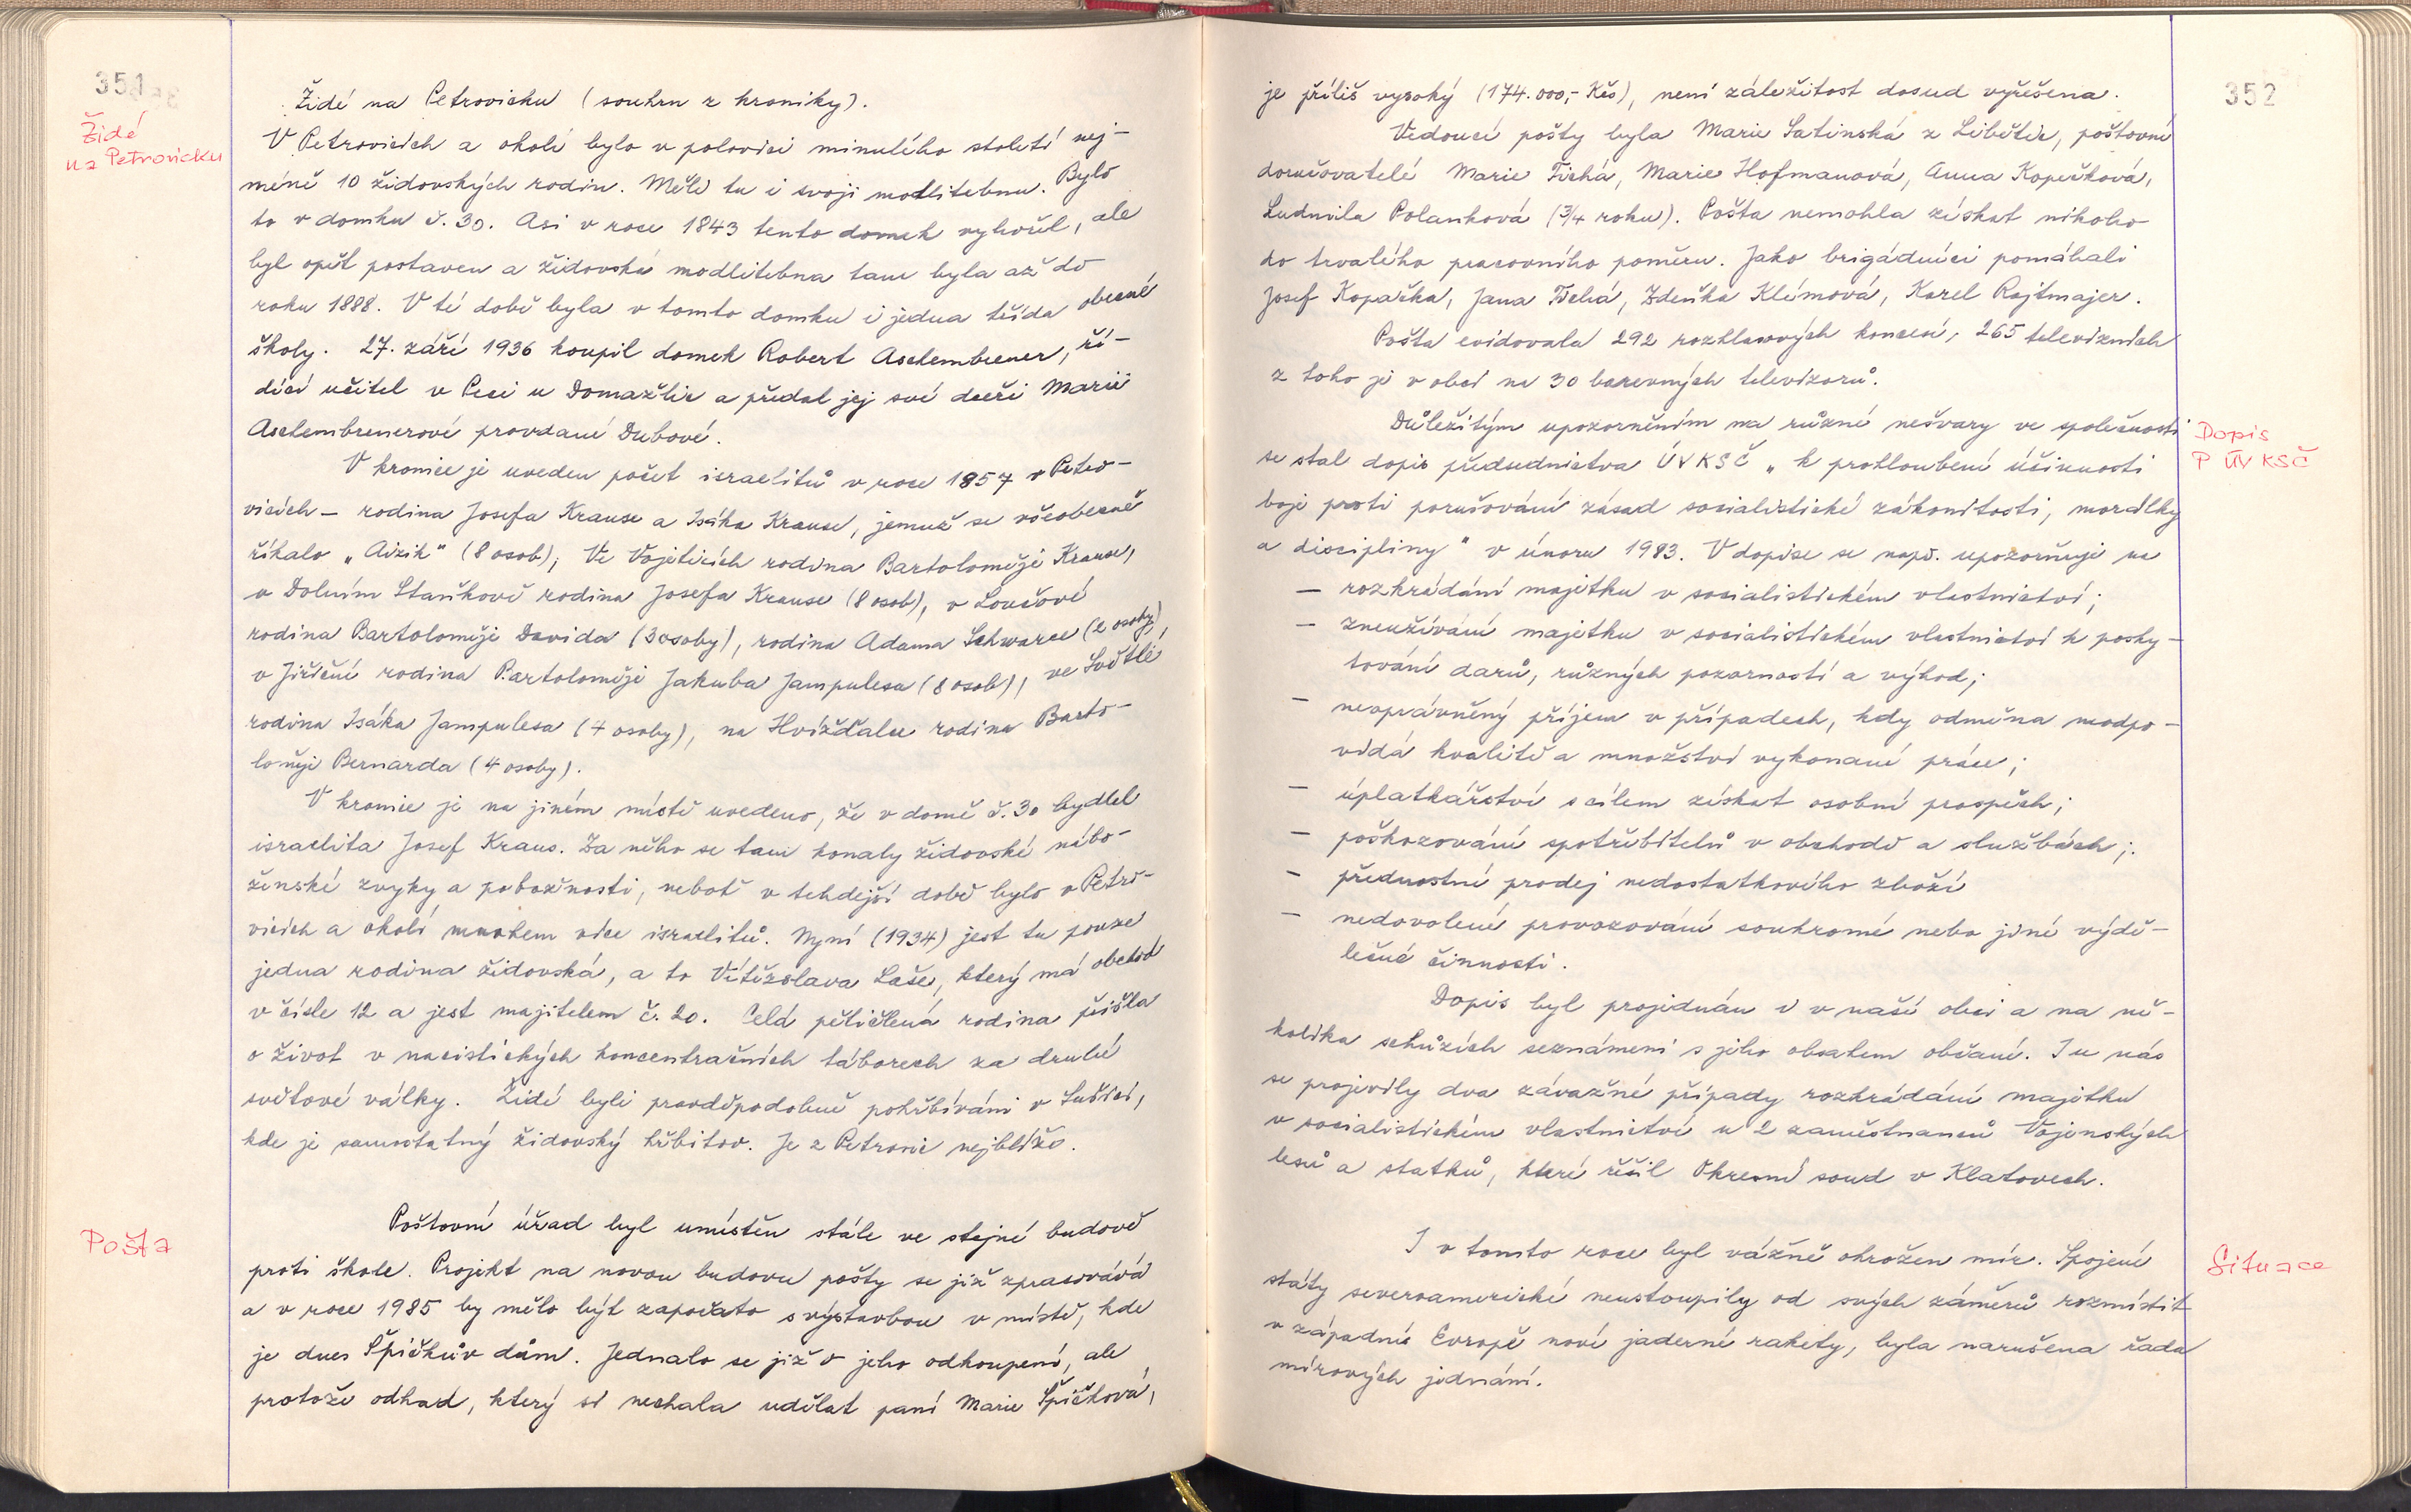 351
Židé
na Petrovicku
Židé na Petrovicku (souhrn z kroniky).
V Petrovicích a okolí bylo v polovici minulého století nej-
méně 10 židovských rodin. Měli tu i svoji modlitebnu. Bylo
to v domku č. 30. Asi v roce 1843 tento domek vyhořel, ale
byl opět postaven a židovská modlitebna tam byla až do
roku 1888. V té době byla v tomto domku i jedna třída obecné
školy. 27. září 1936 koupil domek Robert Aschembrener, ří-
dící učitel v Peci u Domažlic a předal jej své dceři Marii
Aschembrenerové provdané Dubové.
V kronice je uveden počet israelitů v roce 1857 v Petro-
vicích - rodina Josefa Krause a Isáka Krause, jemuž se všeobecně
říkalo „Aizik" (8 osob); Ve Vojeticích rodina Bartoloměje Krause,
v Dolním Staňkově rodina Josefa Krause (8 osob), v Lovčové
rodina Bartoloměje Davida (3 osoby), rodina Adama Schwarce (2 osoby),
v Jiřičné rodina Bartoloměje Jakuba Jampulesa (8 osob), ve Světlé
rodina Isáka Jampulesa (4 osoby), na Hvížďalce rodina Barto-
loměje Bernarda (4 osoby).
V kronice je na jiném místě uvedeno, že v domě č. 30 bydlel
israelita Josef Kraus. Za něho se tam konaly židovské nábo-
ženské zvyky a pobožnosti, neboť v tehdejší době bylo v Petro-
vicích a okolí mnohem více israelitů. Nyní (1934) jest tu pouze
jedna rodina židovská, a to Vítězslava Laše, který má obchod
v čísle 12 a jest majitelem č. 20. Celá pětičlená rodina přišla
o život v nacistických koncentračních táborech za druhé
světové války. Židé byli pravděpodobně pohřbíváni v Sušici,
kde je samostatný židovský hřbitov. Je z Petrovic nejblíže.
Pošta
Poštovní úřad byl umístěn stále ve stejné budově
proti škole. Projekt na novou budovu pošty se již zpracovává
a v roce 1985 by mělo být započato s výstavbou v místě, kde
je dnes Špičkův dům. Jednalo se již o jeho odkoupení, ale
protože odhad, který si nechala udělat paní Marie Špičková,
352
je příliš vysoký (174.000,- Kčs), není záležitost dosud vyřešena.
Vedoucí pošty byla Marie Satinská z Libětic, poštovní
doručovatelé Marie Tichá, Marie Hofmanová, Anna Kopečková,
Ludmila Polanková (3/4 roku). Pošta nemohla získat nikoho
do trvalého pracovního poměru. Jako brigádníci pomáhali
Josef Kopačka, Jana Tichá, Zdeňka Klímová, Karel Rajtmajer.
Pošta evidovala 292 rozhlasových koncesí, 265 televizních
z toho je v obci na 30 barevných televizorů.
Dopis
P ÚV KSČ
Důležitým upozorněním na různé nešvary ve společnosti
se stal dopis předsednictva ÚV KSČ „k prohloubení účinnosti
boje proti porušování zásad socialistické zákonitosti, morálky
a disciplíny" v únoru 1983. V dopise se např. upozorňuje na
- rozkrádání majetku v socialistickém vlastnictví;
- zneužívání majetku v socialistickém vlastnictví k posky-
tování darů, různých pozorností a výhod;
- neoprávněný příjem v případech, kdy odměna neodpo-
vídá kvalitě a množství vykonané práce;
- úplatkářství s cílem získat osobní prospěch;
- poškozování spotřebitelů v obchodě a službách;
- přednostní prodej nedostatkového zboží
- nedovolené provozování soukromé nebo jiné výdě-
lečné činnosti.
Dopis byl projednán i v naší obci a na ně-
kolika schůzích seznámeni s jeho obsahem občané. I u nás
se projevily dva závažné případy rozkrádání majetku
v socialistickém vlastnictví u 2 zaměstnanců Vojenských
lesů a statků, které řešil Okresní soud v Klatovech.
Situace
I v tomto roce byl vážně ohrožen mír. Spojené
státy severoamerické neustoupily od svých záměrů rozmístit
v západní Evropě nové jaderné rakety, byla narušena řada
mírových jednání.